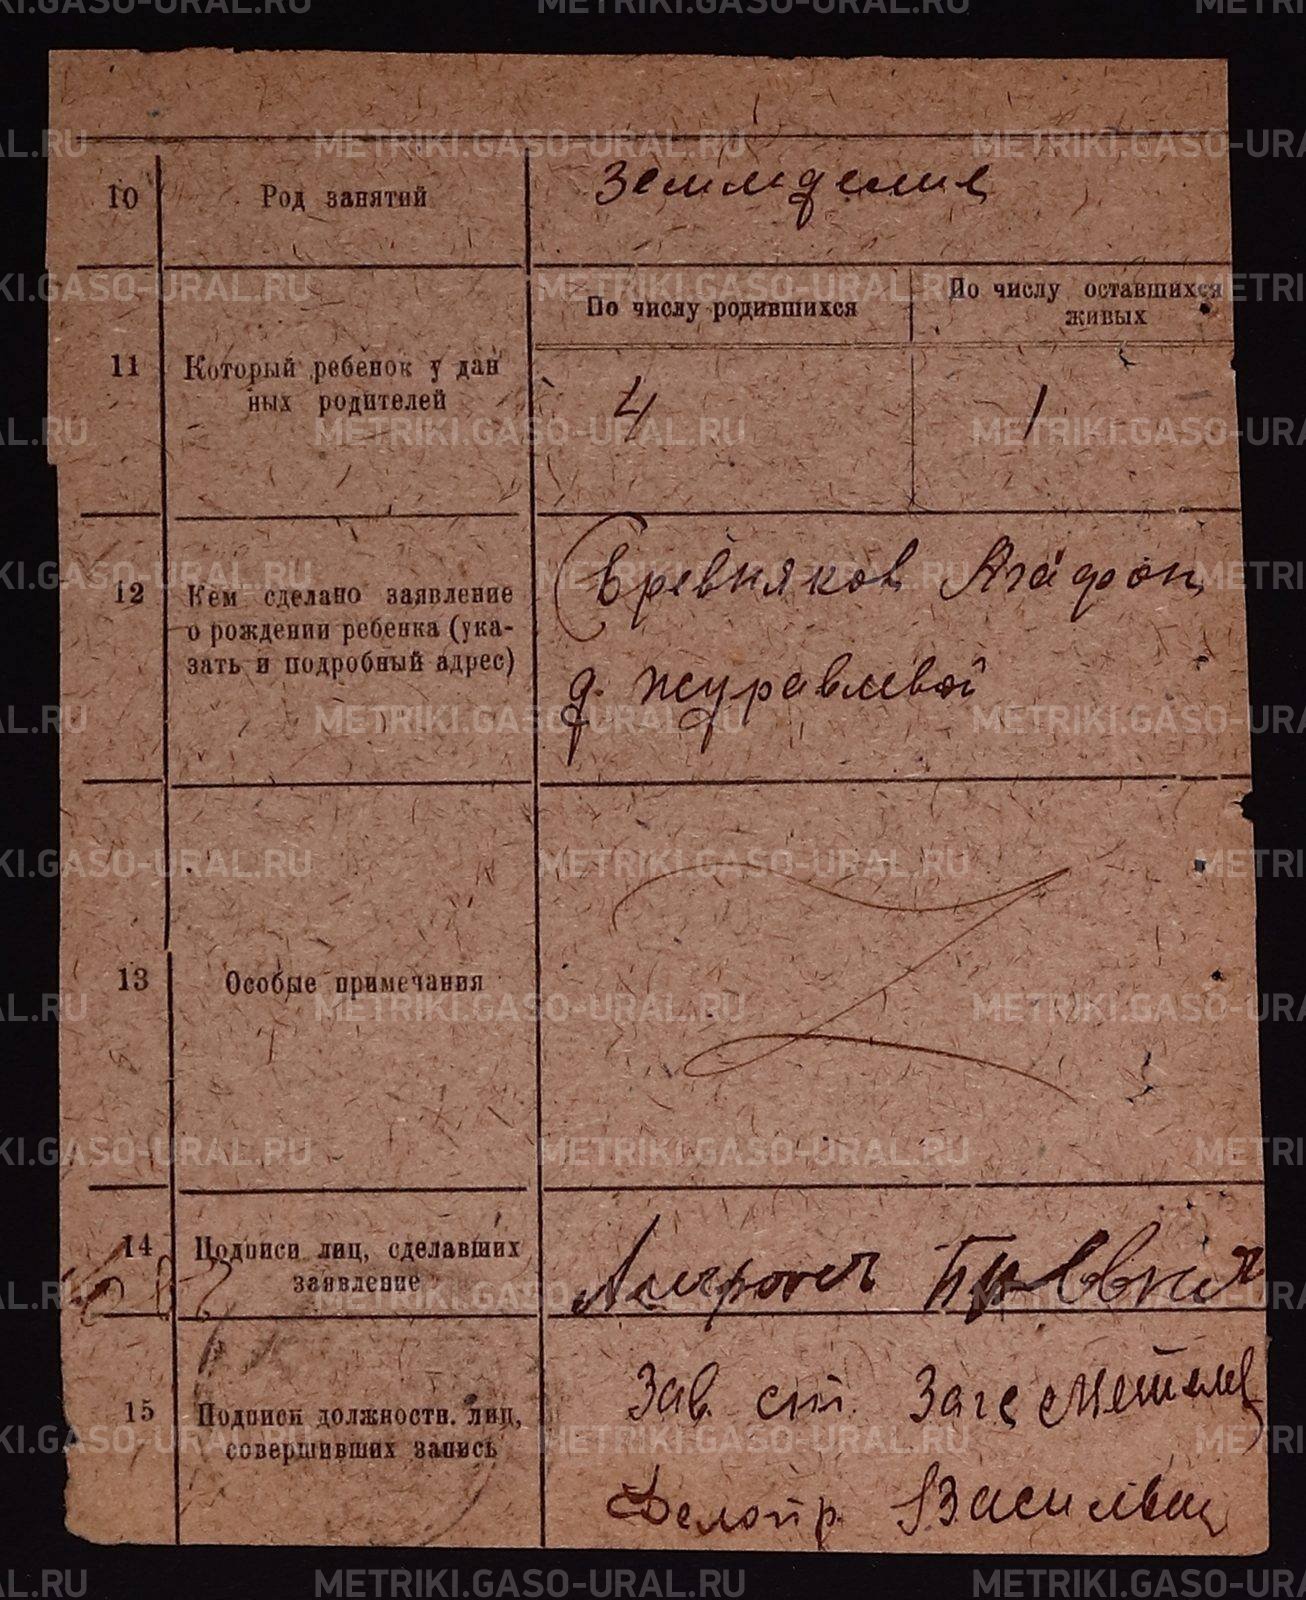 10 Род занятий Земледелие
По числу родившихся По числу оставшихся
живых
11 Который ребенок у дан
ных родителей
4 1
12 Кем сделано заявление
о рождении ребенка (ука-
зать и подробный адрес)
Бревняков Агафон
д. Журавлевой
13 Особые примечания
14 Подписи лиц, сделавших
заявление
15 Подписи должностн. лиц,
совершивших запись
Зав. ст. Загс Метелев
Делопр. Васильев
METRIKI.GASO-URAL.RU